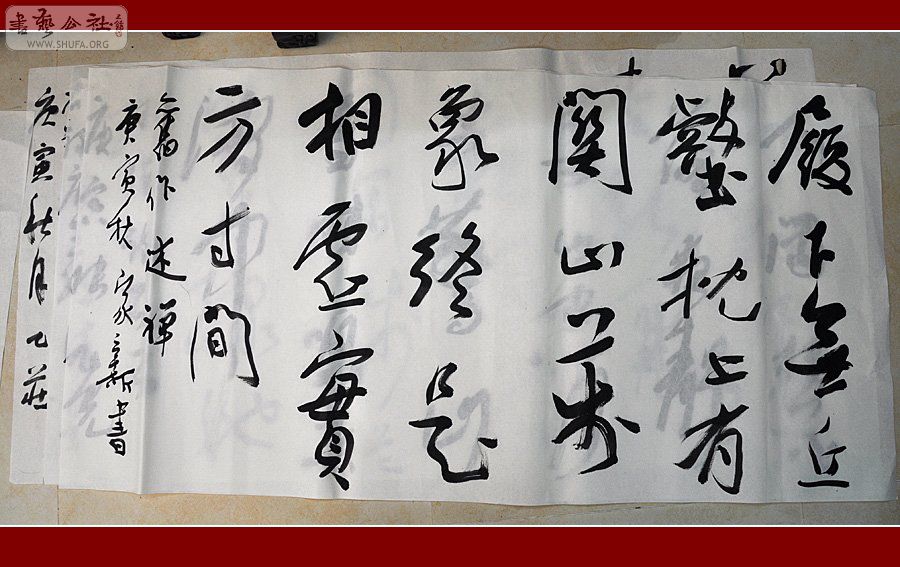 書藝公社
WWW.SHUFA.ORG
履下無丘
壑枕上有
關山萬
象終是
相虛實
方寸間
舊作述禪
庚寅秋家新書
庚寅秋月乙莊